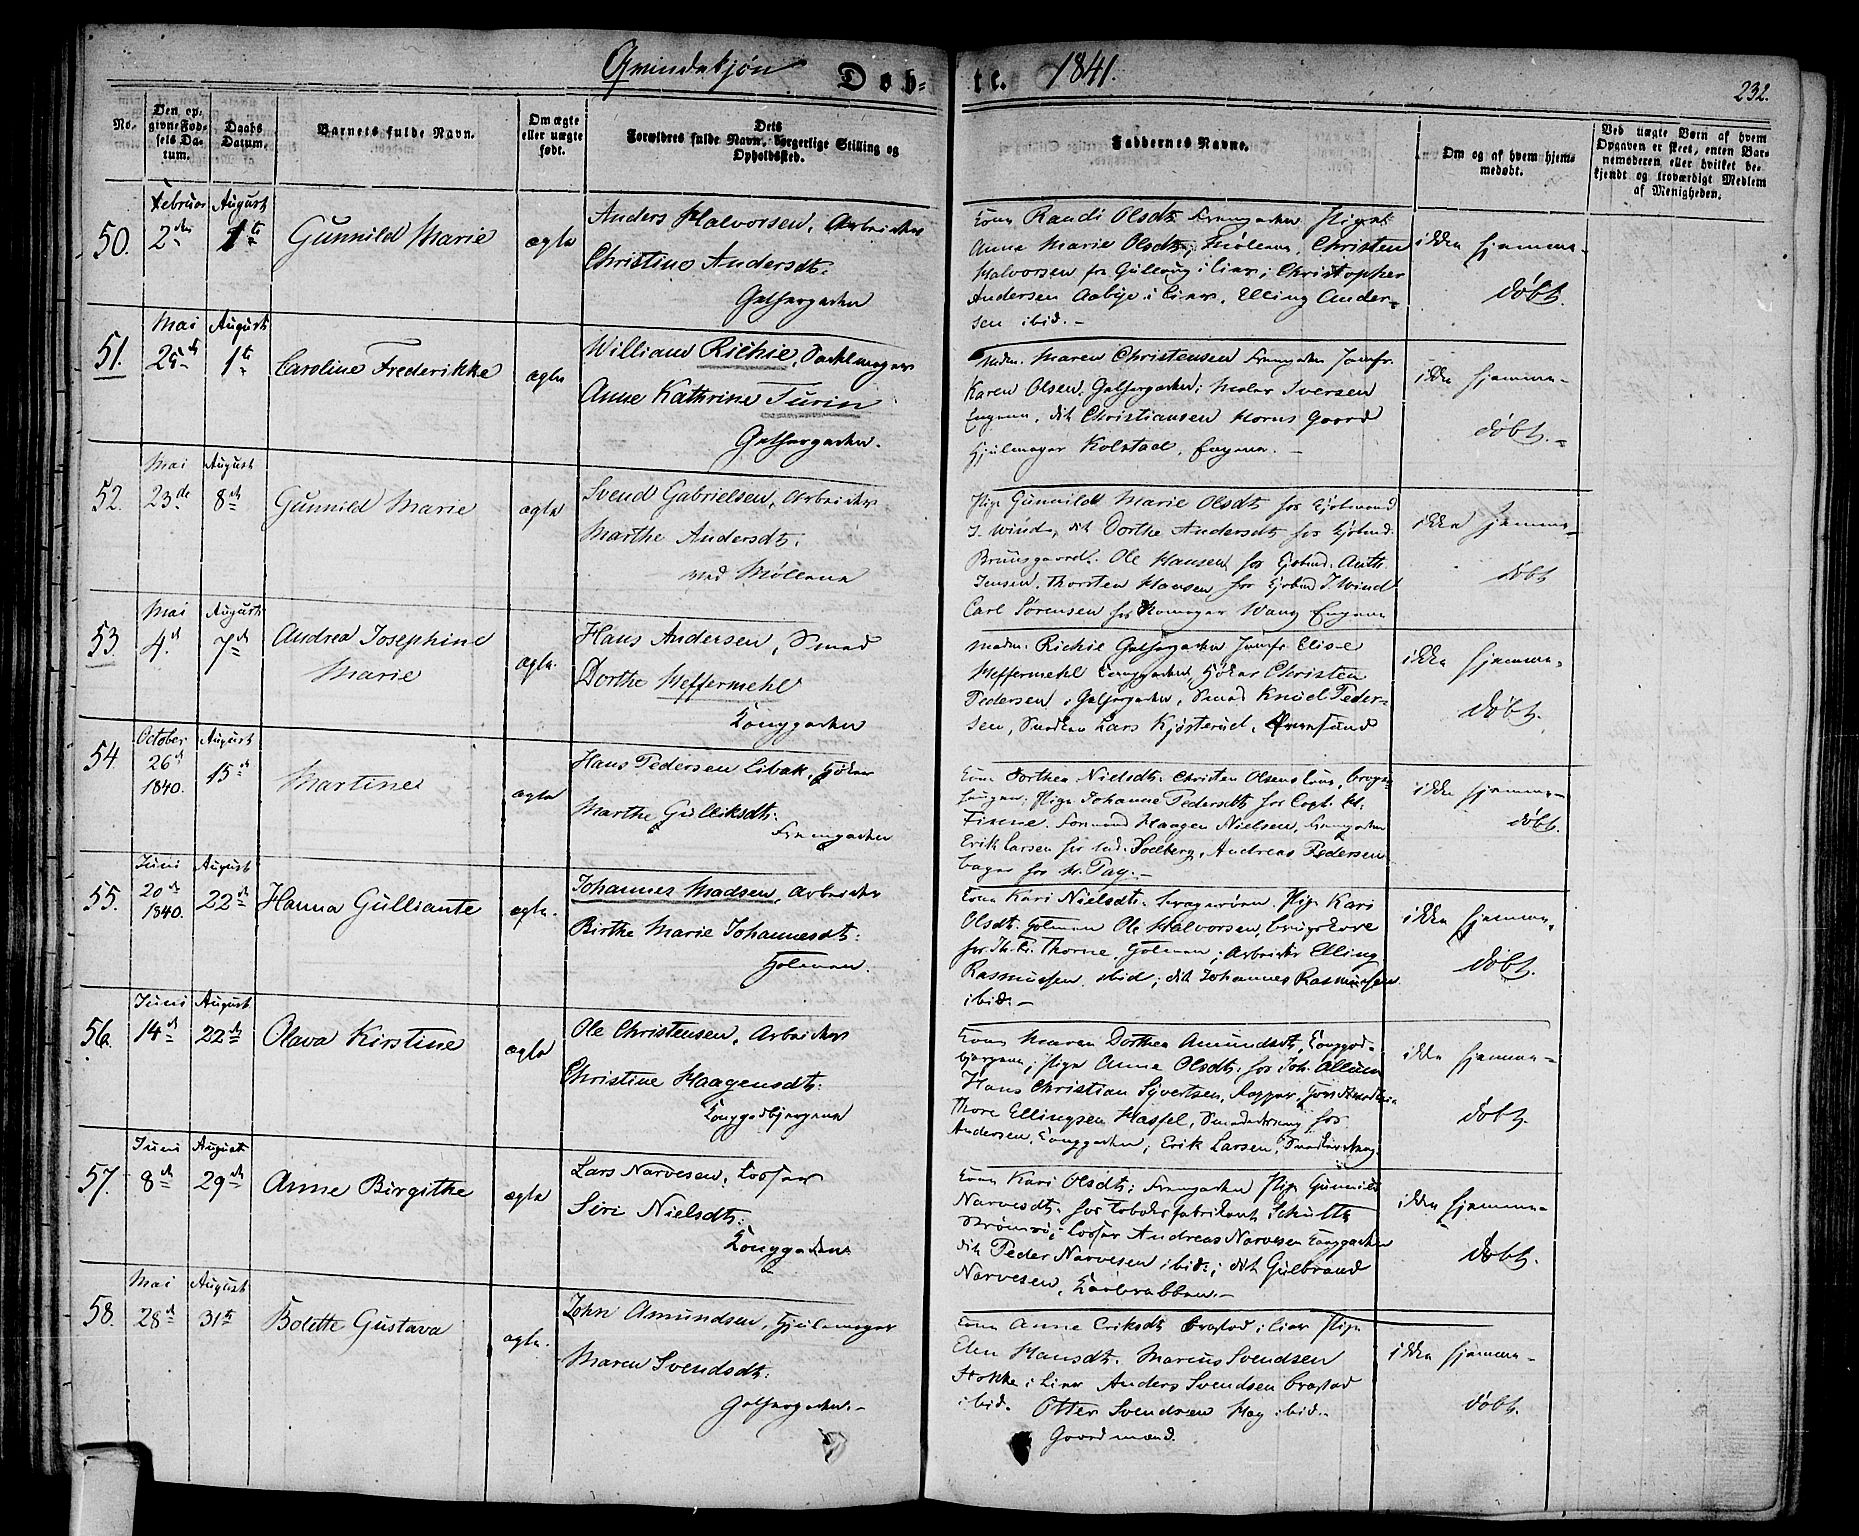 Qvindekjøn Døbte. 1841. 232.
No.
Den opgivne Fødsels Datum.
Daabs Datum.
Barnets fulde Navn.
Om ægte eller uægte født.
Dets Forældres fulde Navn, borgerlige Stilling og Opholdssted.
Faddernes Navne.
Om og af hvem hjemmedøbt.
Ved uægte Børn af hvem
Opgaven er skeet, enten Bar-
nemoderen eller hvilket be-
kjendt og troværdigt Medlem
af Menigheden.
50. Februar 2den August 1te Gunnild Marie ægte
Anders Halvorsen, Arbeider
Christine Andersdt:
Gjetsergaden
Kone Randi Olsdt: Strømgaden Pige
Anna Marie Olsdt: Møllene, Christen
Halvorsen fra Gullaug i Lier, Christopher
Andersen Aabye i Lier, Elling Ander-
sen ibid. -
ikke hjemme-
døbt.
51. Mai 25de August 1te Caroline Frederikke ægte
William Richie,
Anne Kathrine Turin
Gjetsergaden.
Madm. Maren Christensen Strømgaden Jomfr
Karen Olsen, Gjetsergaden; Maler Iversen
Engene, dit Christiansen Horns Gaard
Hjulmager Kolstad, Engene. -
ikke hjemme-
døbt. -
52. Mai 23de August 8de Gunnild Marie ægte
Svend Gabrielsen, Arbeider
Marthe Andersdt:
ved Møllene
Pige Gunnild Marie Olsdt for Kjøbmand
J. Wind, dit Dorthe Andersdt for Kjøbmd
Bruusgaard. Ole Hansen for Kjøbmd. Anth.
Jensen, Thorsten Hansen for Kjøbmd J. Wind
Carl Sørensen for Skomager Wang Engene
ikke hjemme-
døbt
53 Mai 4de August 7de Andrea Josephine ægte.
Marie
Hans Andersen, Smed
Dorthe Heffermehl
Konggaden
Madm. Richie Gjetsergaden Jomfr Elise
Heffermehl Konggaden, Høker Christen
Pedersen i Gjetsergaden, Smed Knud Peder-
sen, Snedker Lars Kjøsterud,
ikke hjemme-
døbt.
54 October 26de 1840. August 15de Martine ægte
Hans Pedersen Libak, Høker
Marthe Gulliksdt:
Strømgaden
Kone Dorthea Nielsdt: Christen Olsens Kone, Brage-
haugen; Pige Johanne Pedersdt for Capt. H.
Finne. Formand Haagen Nielsen, Strømgaden
Erik Larsen for Md. Soelberg, Andreas Pedersen
Bager for M. Pay. -
ikke hjemme-
døbt.
55. Juni 20de 1840. August 22de Hanna Gulliante ægte.
Johannes Madsen, Arbeider
Birthe Marie Johannesdt:
Holmen.
Kone Kari Nielsdt: Bragerøen. Pige Kari
Olsdt: Holmen Ole Halvorsen,
for Th: Kr: Thorne, Holmen; Arbeider Elling
Rasmussen ibid; dit Johannes Rasmussen
ibid. -
ikke hjemme-
døbt.
56. Juni 14de August 22de Olava Kirstine ægte
Ole Christensen, Arbeider
Christine Haagensdt:
Konggadbjergene
Kone Maren Dorthea Amundsdt, Konggad-
bjergene; Pige Anne Olsdt: for Joh. Allum
Hans Christian Syvertsen,
Thore Ellingsen Hassel, for
Andersen, Konggaden; Erik Larsen,
ikke hjemme-
døbt.
57. Juni 8de August 29de Anne Birgithe ægte
Lars Narvesen, Losser
Siri Nielsdt:
Konggaden
Kone Kari Olsdt: Strømgaden Pige Gunnild
Narvesdt: for Tobaksfabrikant Schultz
Strømsø; Losser Andreas Narvesen Konggaden
dit Peder Narvesen ibid; dit Gulbrand
Narvesen,
ikke hjemme-
døbt.
58. Mai 28de August 31te Bolette Gustava ægte.
John Amundsen, Hjulmager
Maren Svendsdt:
Gjetsergaden. -
Kone Anne Eriksdt Bragstad i Lier Pige
Elen Hansdt. Marcus Svendsen
Stokke i Lier Anders Svendsen Bragstad
ibid. Otter Svendsen Hag ibid.
Gaardmænd.
ikke hjemme-
døbt.